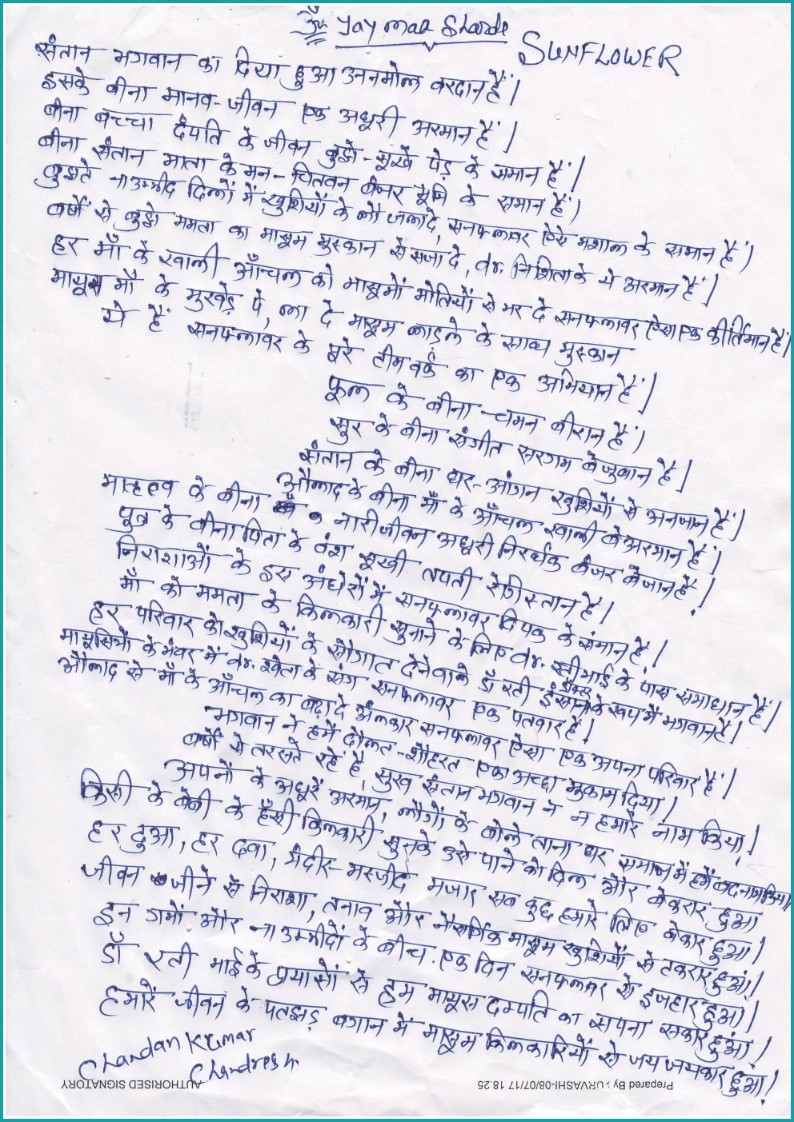 ॐ Jay maa Sharde
SUNFLOWER
संतान भगवान का दिया हुआ अनमोल वरदान हैं।
इसके बीना मानव-जीवन एक अधूरी अरमान हैं।
बीना बच्चा दंपति के जीवन बुझे-सूखे पेड़ के समान हैं।
बीना संतान माता के मन-चितवन बंजर भूमि के समान हैं।
बुझते नाउम्मीद दिलों में खुशियों के लौ जलादे, सनफ्लावर ऐसे मशाल के समान हैं।
वर्षों से बुझे ममता का मासूम मुस्कान से सजा दे, डा. निशिता के ये अरमान हैं।
हर माँ के खाली आँचल को मासूमों मोतियों से भर दे सनफ्लावर ऐसा एक कीर्तिमान हैं।
मायूस माँ के मुखड़े पे, ला दे मासूम लाड़ले के साथ मुस्कान
ये हैं सनफ्लावर के पूरे टीमवर्क का एक अभियान हैं।
फूल के बीना चमन वीरान हैं।
सुर के बीना संगीत सरगम बेजुबान है।
संतान के बीना घर-आंगन खुशियों से अनजान हैं।
औलाद के बीना माँ के आँचल खाली वो अरमान हैं।
मातृत्व के बीना नारी जीवन अधूरी निरर्थक बंजर बेजान हैं।
पूत्र के बीना पिता के वंश सूखी तपती रेगिस्तान हैं।
निराशाओं के इस अंधेरों में सनफ्लावर दिपक के समान हैं।
माँ को ममता के किलकारी सुनाने के लिए डा. रूबी भाई के पास समाधान हैं।
हर परिवार को खुशियों के सौगात देनेवाले डाँ रती इंसान के रूप में भगवान हैं।
मायूसियों के भंवर में डा. श्वेता के संग सनफ्लावर एक पतवार हैं।
औलाद से माँ के आँचल का बढ़ादे अलंकार सनफ्लावर ऐसा एक अपना परिवार हैं।
भगवान ने हमें दौलत-शोहरत एक अच्छा मुकाम दिया।
वर्षों से तरसते रहें हैं सुख संतान भगवान ने न हमारे नाम किया।
अपनों के अधूरें अरमान, लोगों के बोले ताना घर समाज में हमें बदनाम किया।
किसी के बेबी के हँसी किलकारी सुनके उसे पाने को दिल और बेकरार हुआ
हर दुआ, हर दवा, मंदीर-मस्जीद मजार सब कुछ हमारे लिए बेकार हुआ।
जीवन जीने से निराशा, तनाव और नैसर्गिक मासूम खुशियों से तकरार हुआ।
इन गमों और नाउम्मीदों के बीच एक दिन सनफ्लावर से इजहार हुआ।
डाँ रती भाई के प्रयासों से हम मायूस दम्पति का सपना सकार हुआ।
हमारें जीवन के पतझड़ बगान में मासूम किलकारियों से जय जयकार हुआ।
Chandan Kumar
Chandresh
AUTHORISED SIGNATORY
Prepared By : URVASHI-08/07/17 18.25